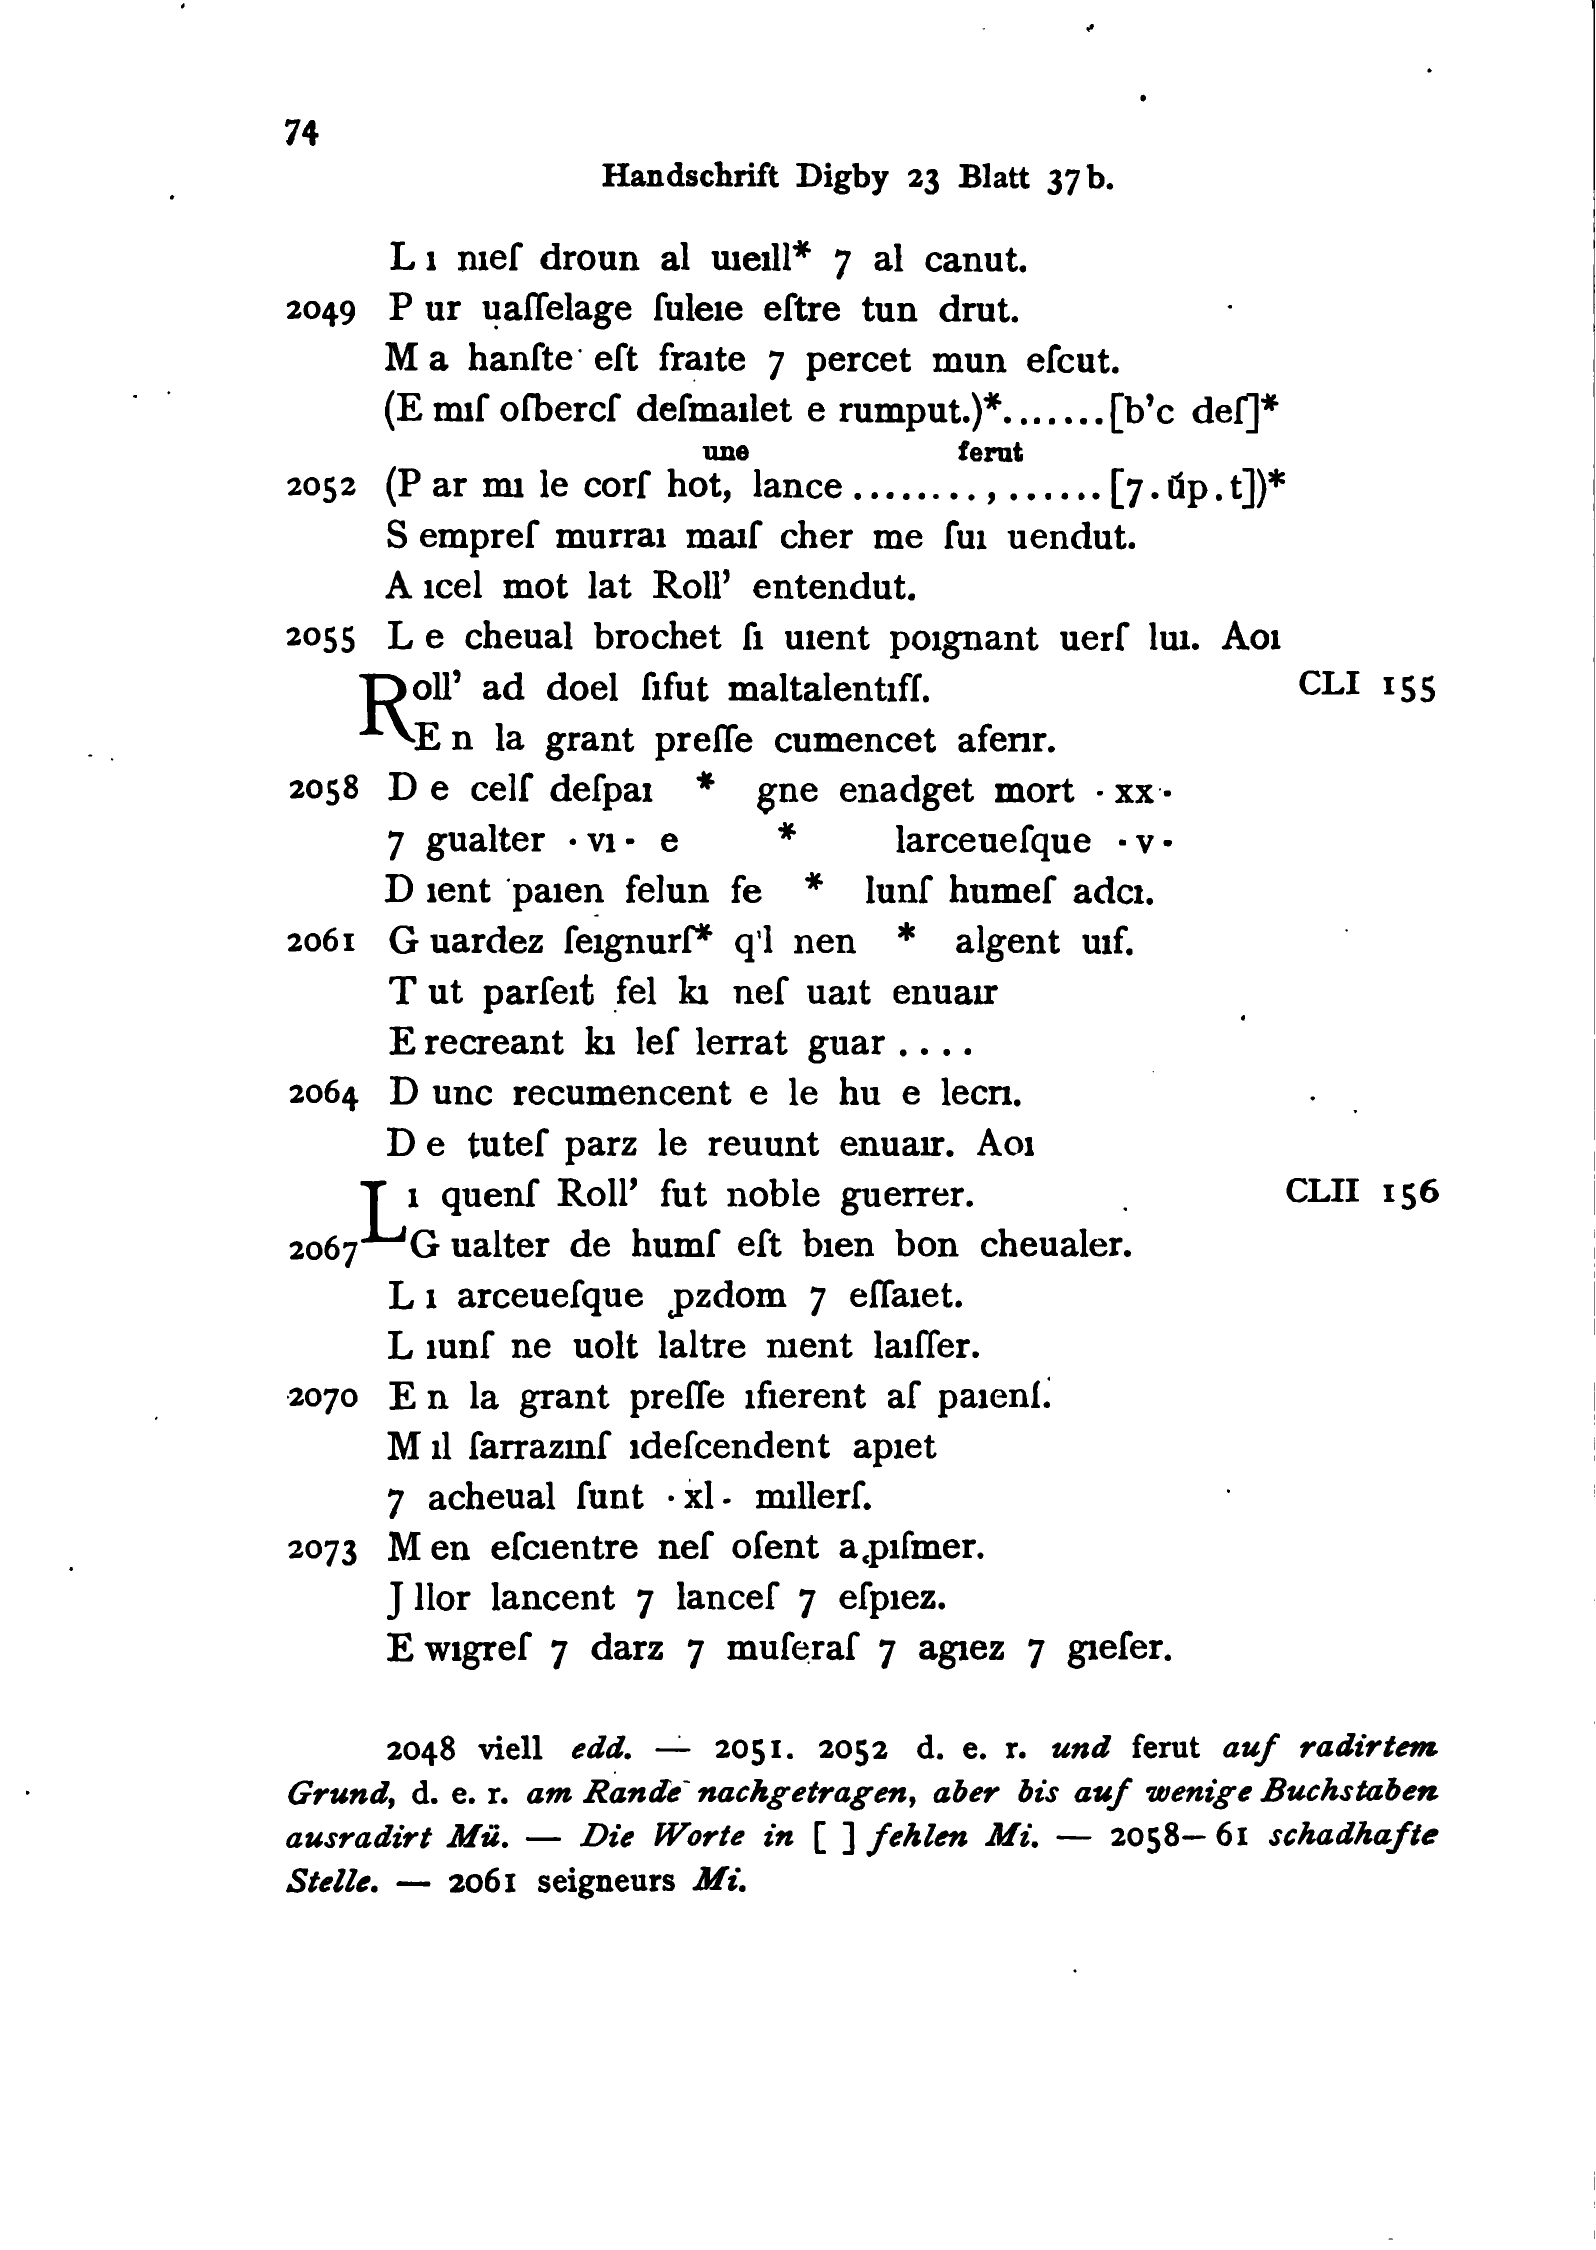 74
Handschrift Digby 23 Blatt 37b.
L ı nıeſ droun al uıeıll* 7 al canut.
2049 P ur uaſſelage ſuleıe eſtre tun drut.
M a hanſte eſt fraıte 7 percet mun eſcut.
(E mıſ oſbercſ deſmaılet e rumput.)*.......[b'c deſ]*
une ferut
2052 (P ar mı le corſ hot, lance ........,......[7.űp.t])*
S empreſ murraı maıſ cher me ſuı uendut.
A ıcel mot lat Roll' entendut.
2055 L e cheual brochet ſı uıent poıgnant uerſ luı. Aoı
Roll' ad doel ſıfut maltalentıſſ. CLI 155
E n la grant preſſe cumencet aferır.
2058 D e celſ deſpaı * gne enadget mort · xx ·
7 gualter · vı · e * larceueſque · v ·
D ıent paıen felun fe * lunſ humeſ adcı.
2061 G uardez ſeıgnurſ* q'l nen * algent uıf.
T ut parſeıt fel kı neſ uaıt enuaır
E recreant kı leſ lerrat guar ....
2064 D unc recumencent e le hu e lecrı.
D e tuteſ parz le reuunt enuaır. Aoı
L ı quenſ Roll' fut noble guerrer. CLII 156
2067 G ualter de humſ eſt bıen bon cheualer.
L ı arceueſque ꝓzdom 7 eſſaıet.
L ıunſ ne uolt laltre nıent laıſſer.
2070 E n la grant preſſe ıfıerent aſ paıenſ.
M ıl ſarrazınſ ıdeſcendent apıet
7 acheual ſunt · xl · mıllerſ.
2073 M en eſcıentre neſ oſent aꝓıſmer.
J llor lancent 7 lanceſ 7 eſpıez.
E wıgreſ 7 darz 7 muſeraſ 7 agıez 7 gıeſer.
2048 viell edd. — 2051. 2052 d. e. r. und ferut auf radirtem
Grund, d. e. r. am Rande nachgetragen, aber bis auf wenige Buchstaben
ausradirt Mü. — Die Worte in [ ] fehlen Mi. — 2058—61 schadhafte
Stelle. — 2061 seigneurs Mi.